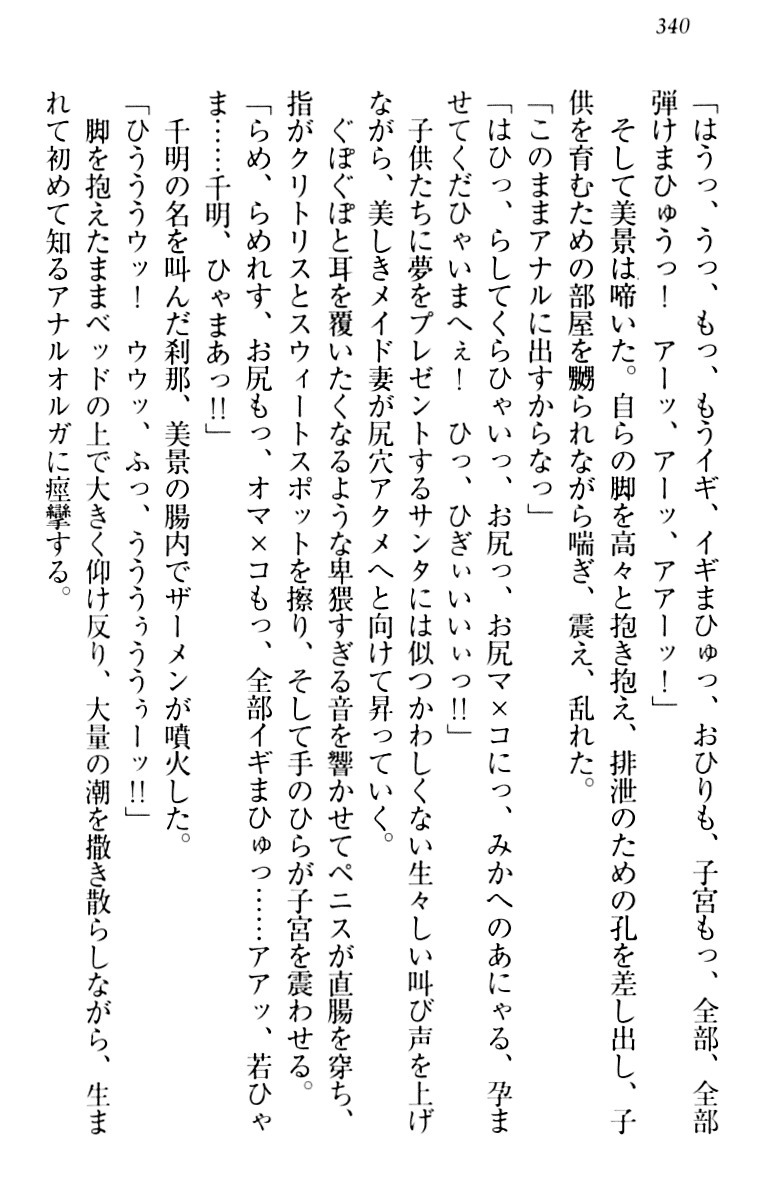 340
「はうっ、うっ、もっ、もうイギ、イギまひゅっ、おひりも、子宮もっ、全部、全部
弾けまひゅうっ！　アーッ、アーッ、アアーッ！」
　そして美景は啼いた。自らの脚を高々と抱き抱え、排泄のための孔を差し出し、子
供を育むための部屋を嬲られながら喘ぎ、震え、乱れた。
「このままアナルに出すからなっ」
「はひっ、らしてくらひゃいっ、お尻っ、お尻マ×コにっ、みかへのあにゃる、孕ま
せてくだひゃいまへぇ！　ひっ、ひぎぃいいいぃっ!!」
　子供たちに夢をプレゼントするサンタには似つかわしくない生々しい叫び声を上げ
ながら、美しきメイド妻が尻穴アクメへと向けて昇っていく。
　ぐぽぐぽと耳を覆いたくなるような卑猥すぎる音を響かせてペニスが直腸を穿ち、
指がクリトリスとスウィートスポットを擦り、そして手のひらが子宮を震わせる。
「らめ、らめれす、お尻もっ、オマ×コもっ、全部イギまひゅっ……アアッ、若ひゃ
ま……千明、ひゃまあっ!!」
　千明の名を叫んだ刹那、美景の腸内でザーメンが噴火した。
「ひうううウッ！　ウウッ、ふっ、うううぅううぅーッ!!」
　脚を抱えたままベッドの上で大きく仰け反り、大量の潮を撒き散らしながら、生ま
れて初めて知るアナルオルガに痙攣する。